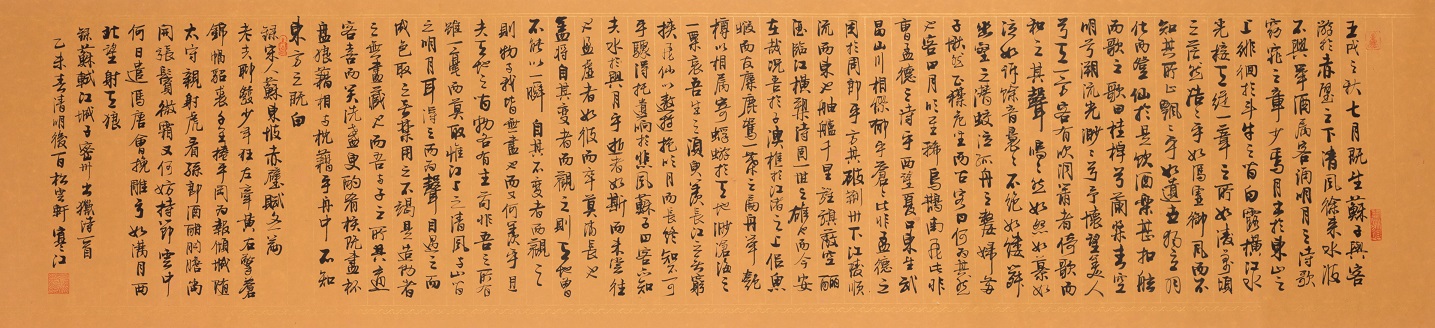 壬戌之秋七月既望蘇子與客
游於赤壁之下清風徐來水波
不興舉酒属客誦明月之詩歌
窈窕之章少焉月出於東山之
上徘徊於斗牛之間白露橫江水
光接天縱一葦之所如凌萬頃
之茫然浩浩乎如馮虛御風而不
知其所止飄飄乎如遺世獨立羽
化而登仙於是飲酒樂甚扣舷
而歌之歌曰桂棹兮蘭槳擊空
明兮溯流光渺渺兮予懷望美人
兮天一方客有吹洞簫者倚歌而
和之其聲嗚嗚然如怨如慕如
泣如訴餘音裊裊不絕如縷舞
幽壑之潛蛟泣孤舟之嫠婦蘇
子愀然正襟危坐而問客曰何為其然
也客曰月明星稀烏鵲南飛此非
曹孟德之詩乎西望夏口東望武
昌山川相繆郁乎蒼蒼此非孟德之
困於周郎乎方其破荊州下江陵順
流而東也舳艫千里旌旗蔽空釃
酒臨江橫槊賦詩固一世之雄也而今安
在哉況吾與子漁樵於江渚之上侶魚
蝦而友麋鹿駕一葉之扁舟舉匏
樽以相屬寄蜉蝣於天地渺滄海之
一粟哀吾生之須臾羨長江之無窮
挾飛仙以遨遊抱明月而長終知不可
乎驟得托遺響於悲風蘇子曰客亦知
夫水與月乎逝者如斯而未嘗往
也盈虛者如彼而卒莫消長也
蓋將自其變者而觀之則天地曾
不能以一瞬自其不變者而觀之
則物與我皆無盡也而又何羨乎且
夫天地之間物各有主苟非吾之所有
雖一毫而莫取惟江上之清風與山間
之明月耳得之而為聲目遇之而
成色取之無禁用之不竭是造物者
之無盡藏也而吾與子之所共適
客喜而笑洗盞更酌肴核既盡杯
盤狼藉相與枕藉乎舟中不知
東方之既白
錄宋人蘇東坡赤壁賦全篇
老夫聊發少年狂左牽黃右擎蒼
錦帽貂裘千騎捲平岡為報傾城隨
太守親射虎看孫郎酒酣胸膽尚
開張鬢微霜又何妨持節雲中
何日遣馮唐會挽雕弓如滿月西
北望射天狼
錄蘇軾江城子密州出獵詩一首
乙未春清明後一日松軒寒江